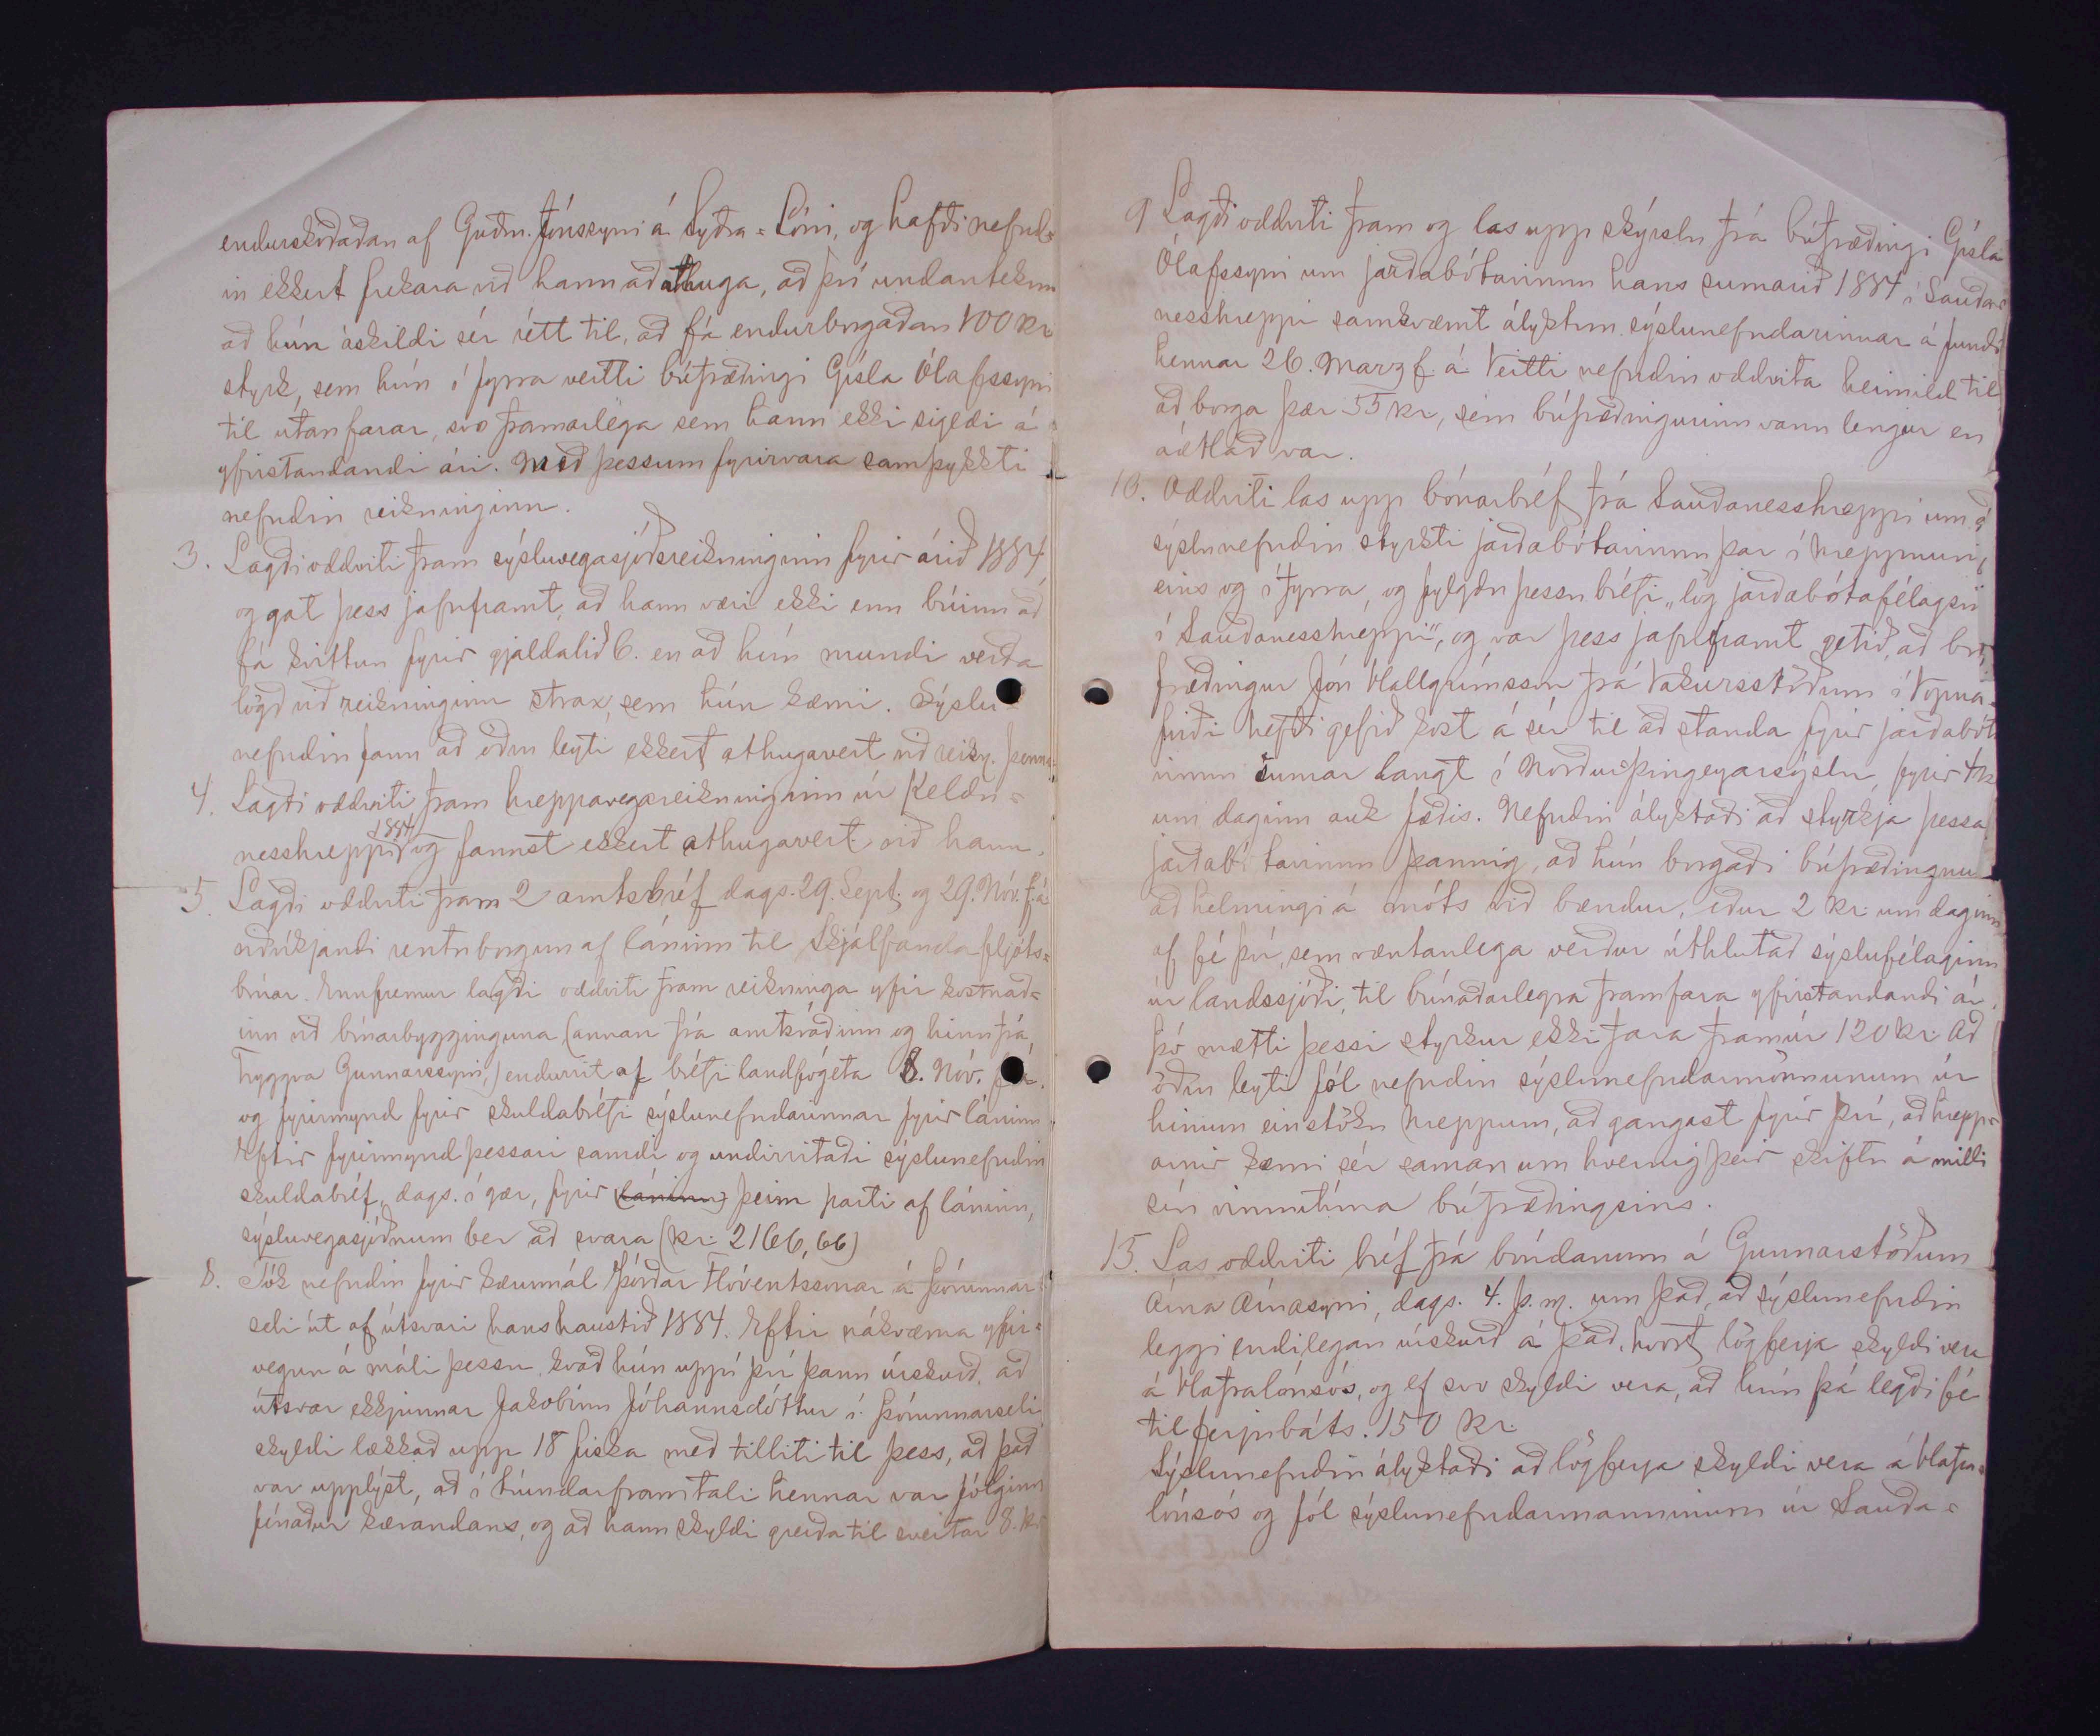 endurskoðaðan af Guðm. Jónssyni á Syðra-Lóni, og hafði nefnd-
in ekkert frekara við hann að athuga, að því undanteknu
að hún áskildi sér rétt til, að fá endurborgaðan 100 kr
styrk, sem hún í fyrra veitti búfræðingi Gísla Ólafssyni
til utanfarar, svo framarlega sem hann ekki sigldi á
yfirstandandi ári. Með þessum fyrirvara samþykkti
nefndin reikninginn.
3. Lagði oddviti fram sýsluvegasjóðsreikninginn fyrir árið 1884
og gat þess jafnframt, að hann væri ekki enn búinn að
fá kvittun fyrir gjaldalið 6. en að hún mundi verða
lögð við reikninginn strax, sem hún kæmi. Sýslu-
nefndin fann að öðru leyti ekkert athugavert við reikn. þenna.
4. Lagði oddviti fram hreppavegareikninginn úr Keldu-
nesshreppi 1884 og fannst ekkert athugavert við hann.
5. Lagði oddviti fram 2 amtsbréf dags. 29. Sept. og 29. Nóv. f.á
viðvíkjandi rentuborgun af láninu til Skjálfandafljóts-
brúar. Ennfremur lagði oddviti fram reikninga yfir kostnað-
inn við brúarbygginguna (annan frá amtsráðinu og hinn frá
Tryggva Gunnarssyni,) endurrit af bréfi landfógeta 8. Nóv. f.á.
og fyrirmynd fyrir skuldabréfi sýslunefndarinnar fyrir láninu.
Eftir fyrirmynd þessari samdi og undirritaði sýslunefndin
skuldabréf, dags. í gær, fyrir (láninu) þeim parti af láninu,
sýsluvegasjóðnum ber að svara (kr. 2166,66)
8. Tók nefndin fyrir kærumál Þórðar Flóventssonar á Þórunnar-
seli út af útsvari hans haustið 1884. Eftir nákvæma yfir-
vegun á máli þessu, kvað hún uppí því þann úrskurð, að
útsvar ekkjunnar Jakobínu Jóhannsdóttur í Þórunnarseli
skyldi lækkað upp 18 fiska með tilliti til þess, að það
var upplýst, að í tíundarframtali hennar var fólginn
fénaður kærandans, og að hann skyldi greiða til sveitar 8. kr
9 Lagði oddviti fram og las upp skýrslu frá búfræðingi Gísla
Ólafssyni um jarðabótavinnu hans sumarið 1884 í Sauða-
nesshreppi samkvæmt ályktun sýslunefndarinnar á fundi
hennar 26. Marz f. á. Veitti nefndin oddvita heimild til
að borga þær 55 kr, sem búfræðingurinn vann lengur en
áætlað var.
10. Oddviti las upp bónarbréf frá Sauðanesshreppi um að
sýslunefndin styrkti jarðabótavinnu þar í hreppnum,
eins og í fyrra, og fylgdu þessu bréfi „lög jarðabótafélagsin
í Sauðanesshreppi“, og var þess jafnframt getið, að bú-
fræðingur Jón Hallgrímsson frá Vakursstöðum í Vopna-
firði hefði gefið kost á sér til að standa fyrir jarðabót-
vinnu sumar langt í Norðurþingeyarsýslu, fyrir 4 kr
um daginn auk fæðis. Nefndin ályktaði að styrkja þessa
jarðabótavinnu þannig, að hún borgaði búfræðingnum
að helmingi á móts við bændur, eður 2 kr. um daginn
af fé því, sem væntanlega verður úthlutað sýslufélaginu
úr landssjóði, til búnaðarlegra framfara yfirstandandi ár.
Þó mætti þessi styrkur ekki fara framúr 120 kr. Að
öðru leyti fól nefndin sýslunefndarmönnunum úr
hinum einstöku hreppum, að gangast fyrir því, að hrepp-
arnir kæmi sér saman um hvernig þeir skiftu á milli
sín vinnutíma búfræðingsins.
15. Las oddviti bréf frá bóndanum á Gunnarstöðum
Árna Árnasyni, dags. 4. þ. m. um það, að sýslunefndin
leggi endilegan úrskurð á það, hvort lögferja skyldi vera
á Hafralónsós, og ef svo skyldi vera, að hún þá legði fé
til ferjubáts. 150 kr.
Sýslunefndin ályktaði að lögferja skyldi vera á Hafra-
lónsós og fól sýslunefndarmanninum úr Sauða-